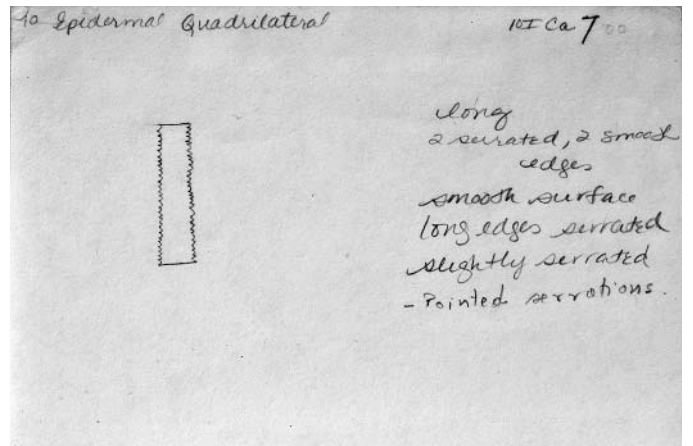 Epidermal Quadrilateral
10I Ca 7 00
long
2 serrated, 2 smooth
edges
smooth surface
long edges serrated
slightly serrated
- Pointed serrations.